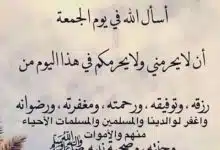 أسأل الله في يوم الجمعة
أن لايحرمني ولايحرمكم في هذا اليوم من
رزقه ، وتوفيقه ، ورحمته ، ومغفرته ، ورضوانه
واغفر لوالدينا والمسلمين والمسلمات الأحياء
منهم والأموات